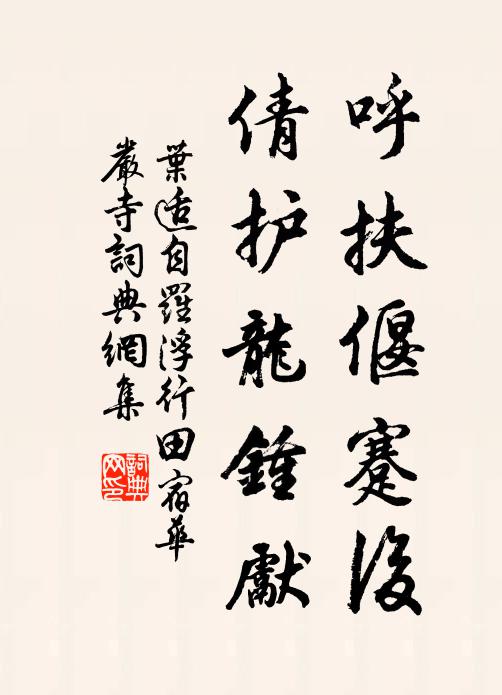 呼扶偃蹇後
倩护龍鍾獻
葉适自羅浮行田宿華
嚴寺詞典網集
詞典网印